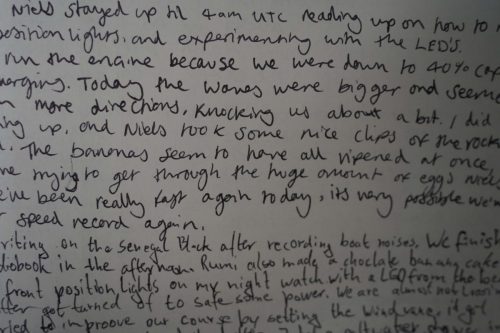 Niels stayed up til 4am UTC reading up on how to
position lights, and experimenting with the LED's.
run the engine because we were down to 40% cap
merging. Today the waves were bigger and seeme
more directions, knocking us about a bit. I did
ng up, and Niels took some nice clips of the rock
. The bananas seem to have all ripened at once,
re trying to get through the huge amount of eggs Niels
e've been really fast again today, its very possible we'
speed record again.
riting on the Senegal after recording boat noises. We finish
diobook in the afternoon. Rumi also made a choclate banana cake
front position lights on my night watch with a LED from the bo
fter got turned of to safe some power. We are almost not
ried to improve our course by setting the windvane, it got